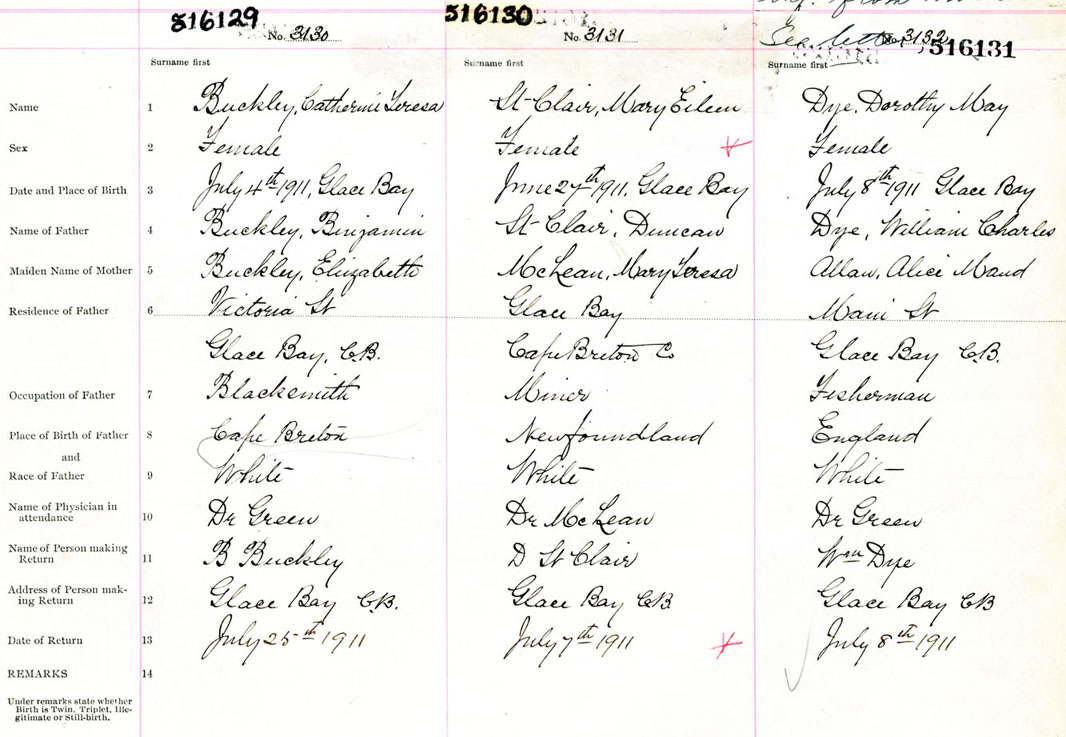 516129 516130
No. 3130 No. 3131 No. 3132 516131
Surname first Surname first Surname first
Name 1 Buckley, Catherine Teresa St-Clair, Mary Eileen Dye, Dorothy May
Sex 2 Female Female Female
Date and Place of Birth 3 July 4th 1911, Glace Bay June 27th 1911, Glace Bay July 8th 1911 Glace Bay
Name of Father 4 Buckley, Benjamin St-Clair, Duncan Dye, William Charles
Maiden Name of Mother 5 Buckley, Elizabeth McLean, Mary Teresa Allan, Alice Maud
Residence of Father 6 Victoria St Glace Bay Main St
Glace Bay, C.B. Cape Breton C Glace Bay C.B.
Occupation of Father 7 Blacksmith Miner Fisherman
Place of Birth of Father 8 Cape Breton Newfoundland England
and
Race of Father 9 White White White
Name of Physician in
attendance 10 Dr Green Dr McLean Dr Green
Name of Person making
Return 11 B Buckley D St Clair Wm Dye
Address of Person mak-
ing Return 12 Glace Bay C.B. Glace Bay CB Glace Bay CB
Date of Return 13 July 25th 1911 July 7th 1911 July 8th 1911
REMARKS 14
Under remarks state whether
Birth is Twin, Triplet, Ille-
gitimate or Still-birth.